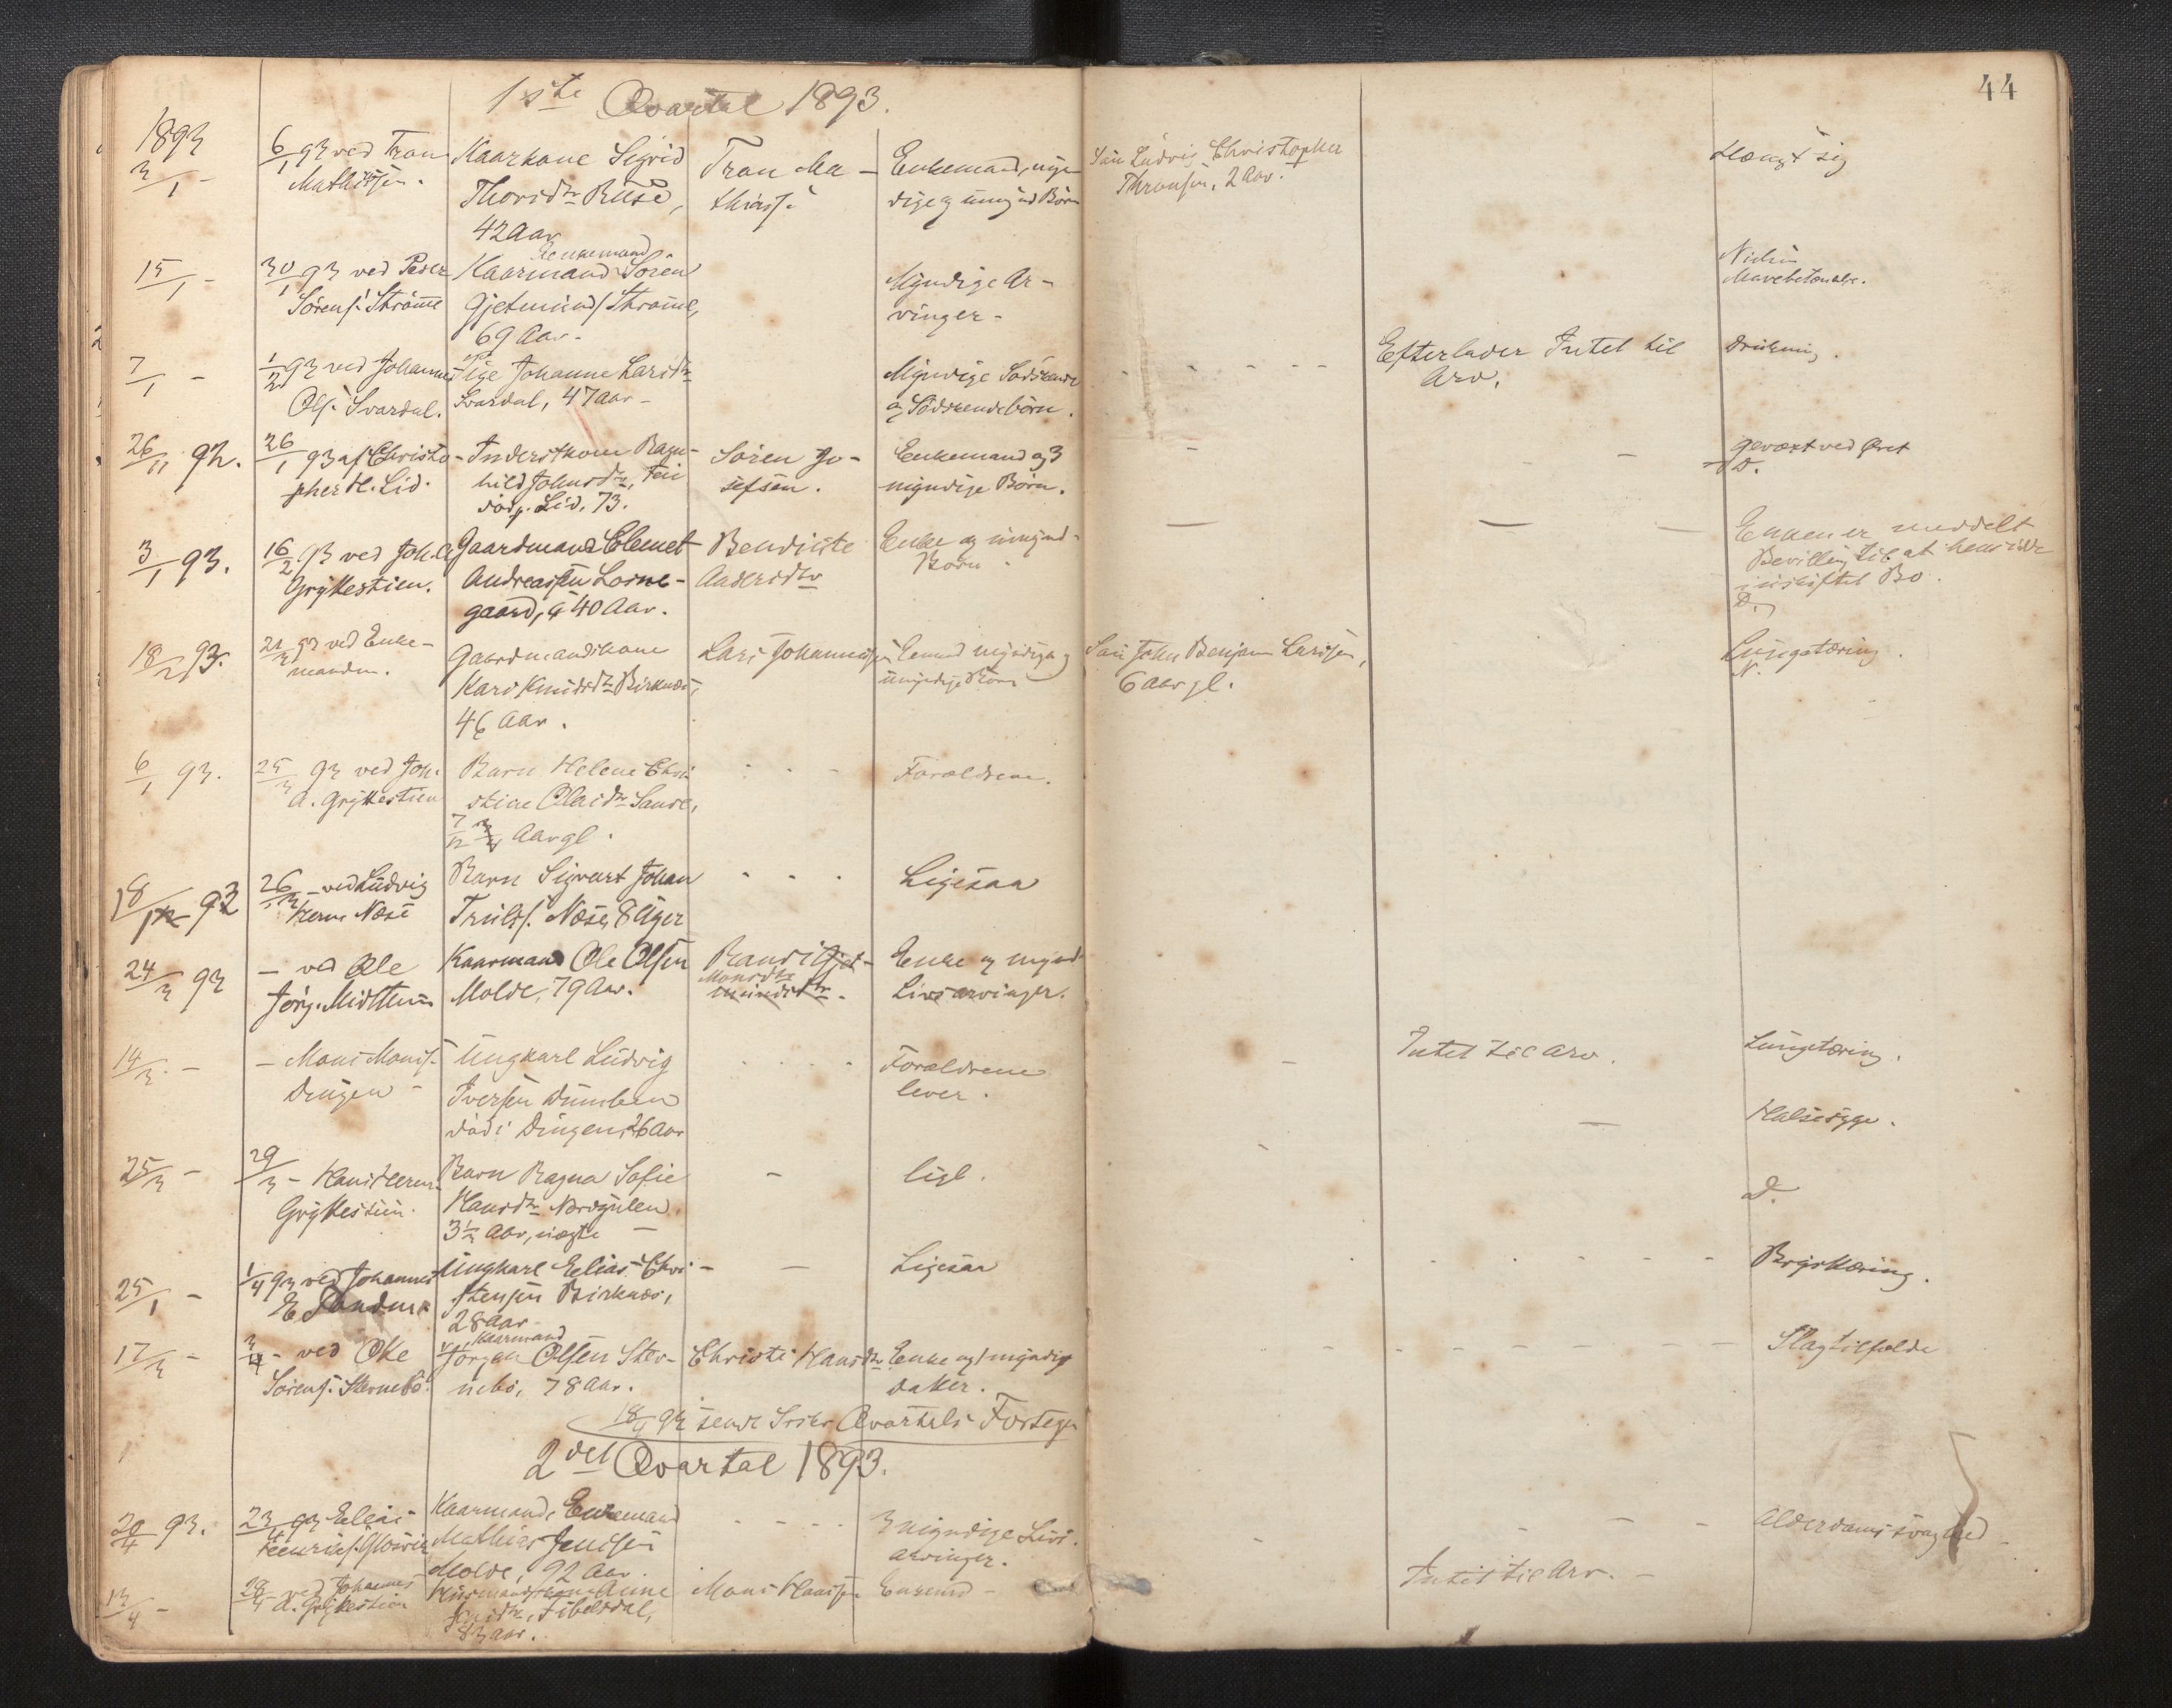 44
1ste Qvartal 1893.
1893
3/1 -
6/1 93 ved Tron
Mathiass.
Kaarkone Sigrid
Thorsdtr Ruse,
42 Aar
Tron Ma-
thiass.
Enkemand, myn-
dige og umynd Børn
Søn Ludvig Christopher
Thronsen, 2 Aar.
Hængt sig
15/1 -
30/1 93 ved Peder
Sørens. Strømme
Enkemand
Kaarmand Søren
Gjetmunds. Strømme,
69 Aar -
Myndige Ar-
vinger -
7/1 -
1/2 93 ved Johannes
Ols. Svardal.
Pige Johanne Larsdtr
Svardal, 47 Aar -
Myndige Sødskende
og Sødskendebørn.
Efterlader Intet til
Arv.
Drukning.
26/11 92.
26/1 93 af Christo-
pher H. Lid.
Inderstkone Ragn-
hild Johnsdtr,
Lid. 73.
Søren Jo-
sefsen.
Enkemand og 3
myndige Børn.
ved Øret
D.
3/1 93.
16/2 93 ved Joh. A
Gryttestien.
Gaardmand Clemet
Andreassen Losne-
gaard, 40 Aar.
Bendikte
Andersdtr
Enke og umynd.
Børn.
Enken er meddelt
Bevilling til at hensidde
i uskiftet Bo.
D.
18/2 93.
93 ved Enke-
manden.
Gaardmandskone
Kari Knudsdtr Birknæs,
46 Aar.
Lars Johannessen
Enkemd myndige og
umyndige Børn
Søn John Benjamin Larssen,
6 Aar gl.
Lungetæring.
N.
6/1 93.
25/3 93 ved Joh.
A. Gryttestien
Barn Helene Chri-
stine Olaidtr Sande,
7/12 Aar gl.
Forældrene.
18/ 93
26/3 - ved Ludvig
Herm. Næse
Barn Sigvart Johan
Truls. Næse, 8 Uger
Ligesaa
24/3 93
- ved Ole
Jørg. Midttun
Kaarmand Ole Olsen
Molde, 79 Aar.
Randi Gjet-
Monsdtr
mundsdtr.
Enke og mynd
Livsarvinger.
14/3 -
- Mons Monss.
Dingen -
Ungkarl Ludvig
Iversen Dumben
død i Dingen, 26 Aar
Forældrene
lever.
Intet til Arv.
Lungetæring.
Halssyge.
25/3 -
29/3 - Hans Herm.
Gryttestien.
Barn Ragna Sofie
Hansdtr Nordgulen
3 1/2 Aar, uægte
ligl.
D.
25/1 -
1/4 93 ved Johannes
E
Ungkarl Elias Chri-
stensen Birknæs,
28 Aar
Ligesaa
Brysttæring.
17/3 -
3/4 - ved Ole
Sørens. Sternebø.
Kaarmand
Jørgen Olsen Ster-
nebø, 78 Aar.
Christi Hansdtr
Enke og 1 myndig
Datter.
Slagtilfælde
18/4 93 sendt Skifter Qvartals Forteg.
2det Qvartal 1893.
20/4 93.
23/4 93 Elias
Henriks.
Kaarmand, Enkemand
Mathias Jensen
Molde, 92 Aar.
3 myndige Livs-
arvinger.
Alderdomssvaghed
13/4 -
ved Johannes
A. Gryttestien
Huusmandskone Anne
83 Aar.
Mons Hanssen
Enkemd -
Intet til Arv. -